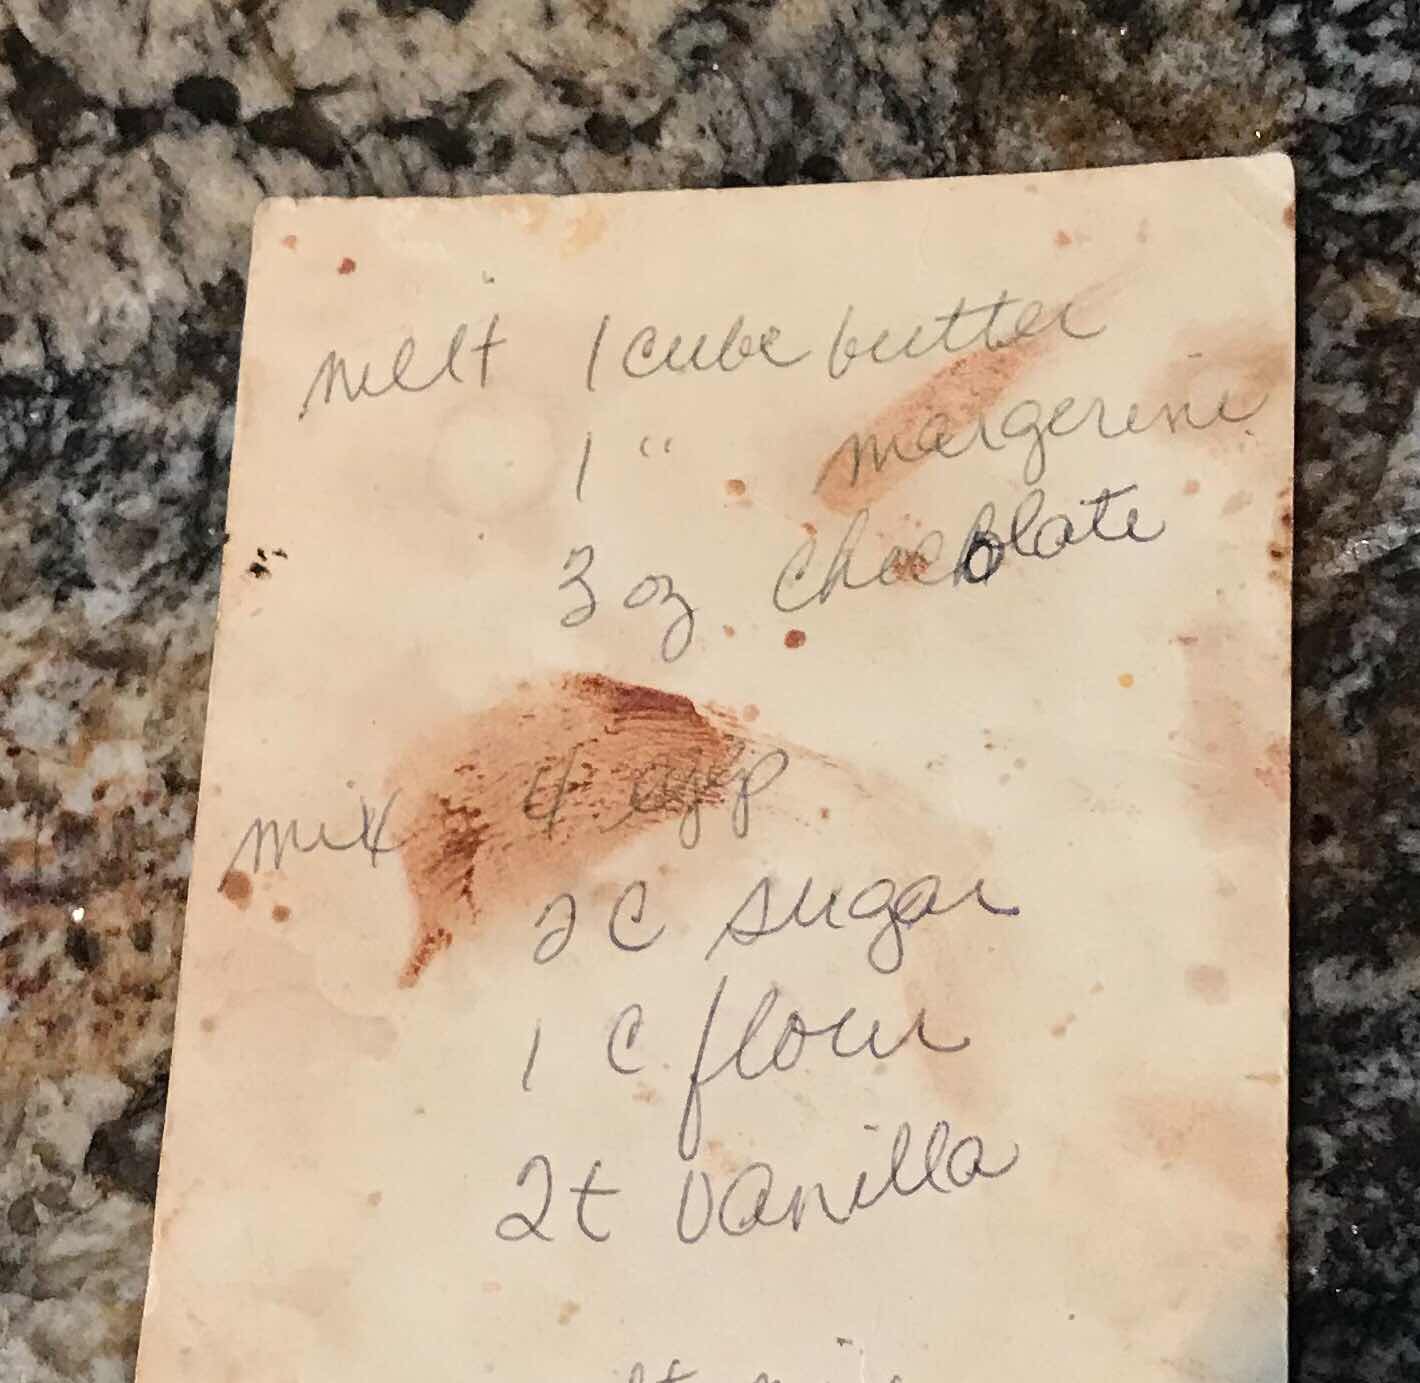 melt 1 cube butter
1 " margerine
3 oz chocolate
mix 4 eggs
2 C sugar
1 C flour
2t vanilla